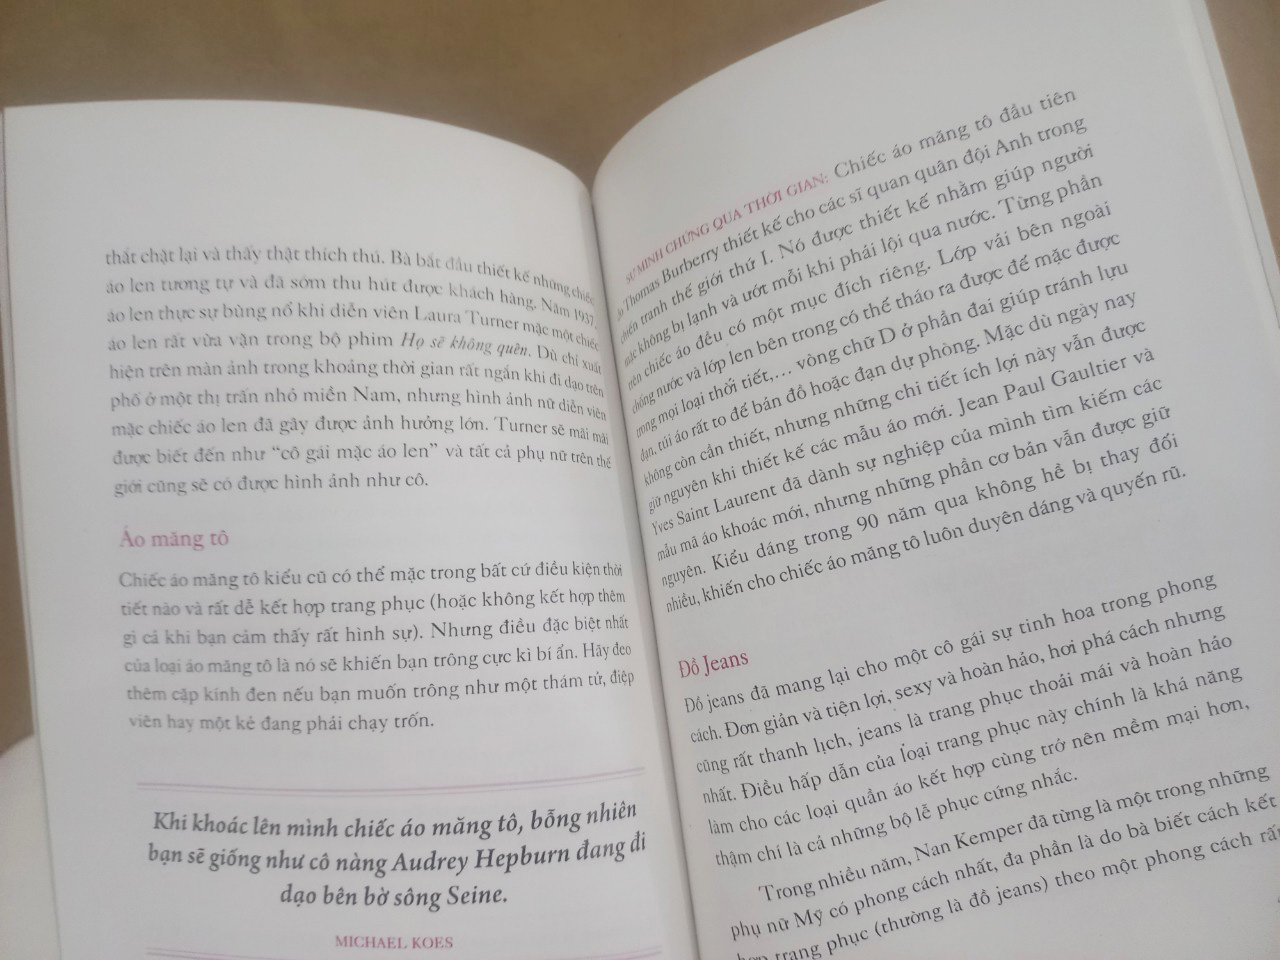 thắt chặt lại và thấy thật thích thú. Bà bắt đầu thiết kế những chiếc
áo len tương tự và đã sớm thu hút được khách hàng. Năm 1937,
áo len thực sự bùng nổ khi diễn viên Laura Turner mặc một chiếc
áo len rất vừa vặn trong bộ phim Họ sẽ không quên. Dù chỉ xuất
hiện trên màn ảnh trong khoảng thời gian rất ngắn khi đi dạo trên
phố ở một thị trấn nhỏ miền Nam, nhưng hình ảnh nữ diễn viên
mặc chiếc áo len đã gây được ảnh hưởng lớn. Turner sẽ mãi mãi
được biết đến như “cô gái mặc áo len” và tất cả phụ nữ trên thế
giới cũng sẽ có được hình ảnh như cô.
Áo măng tô
Chiếc áo măng tô kiểu cũ có thể mặc trong bất cứ điều kiện thời
tiết nào và rất dễ kết hợp trang phục (hoặc không kết hợp thêm
gì cả khi bạn cảm thấy rất hình sự). Nhưng điều đặc biệt nhất
của loại áo măng tô là nó sẽ khiến bạn trông cực kì bí ẩn. Hãy đeo
thêm cặp kính đen nếu bạn muốn trông như một thám tử, điệp
viên hay một kẻ đang phải chạy trốn.
Khi khoác lên mình chiếc áo măng tô, bỗng nhiên
bạn sẽ giống như cô nàng Audrey Hepburn đang đi
dạo bên bờ sông Seine.
MICHAEL KOES
SỰ MINH CHỨNG QUA THỜI GIAN: Chiếc áo măng tô đầu tiên
do Thomas Burberry thiết kế cho các sĩ quan quân đội Anh trong
chiến tranh thế giới thứ I. Nó được thiết kế nhằm giúp người
mặc không bị lạnh và ướt mỗi khi phải lội qua nước. Từng phần
trên chiếc áo đều có một mục đích riêng. Lớp vải bên ngoài
chống nước và lớp len bên trong có thể tháo ra được để mặc được
trong mọi loại thời tiết,... vòng chữ D ở phần đai giúp tránh lựu
đạn, túi áo rất to để bản đồ hoặc đạn dự phòng. Mặc dù ngày nay
không còn cần thiết, nhưng những chi tiết ích lợi này vẫn được
giữ nguyên khi thiết kế các mẫu áo mới. Jean Paul Gaultier và
Yves Saint Laurent đã dành sự nghiệp của mình tìm kiếm các
mẫu mã áo khoác mới, nhưng những phần cơ bản vẫn được giữ
nguyên. Kiểu dáng trong 90 năm qua không hề bị thay đổi
nhiều, khiến cho chiếc áo măng tô luôn duyên dáng và quyến rũ.
Đồ Jeans
Đồ jeans đã mang lại cho một cô gái sự tinh hoa trong phong
cách. Đơn giản và tiện lợi, sexy và hoàn hảo, hơi phá cách nhưng
cũng rất thanh lịch, jeans là trang phục thoải mái và hoàn hảo
nhất. Điều hấp dẫn của loại trang phục này chính là khả năng
làm cho các loại quần áo kết hợp cùng trở nên mềm mại hơn,
thậm chí là cả những bộ lễ phục cứng nhắc.
Trong nhiều năm, Nan Kemper đã từng là một trong những
phụ nữ Mỹ có phong cách nhất, đa phần là do bà biết cách kết
hợp trang phục (thường là đồ jeans) theo một phong cách rất